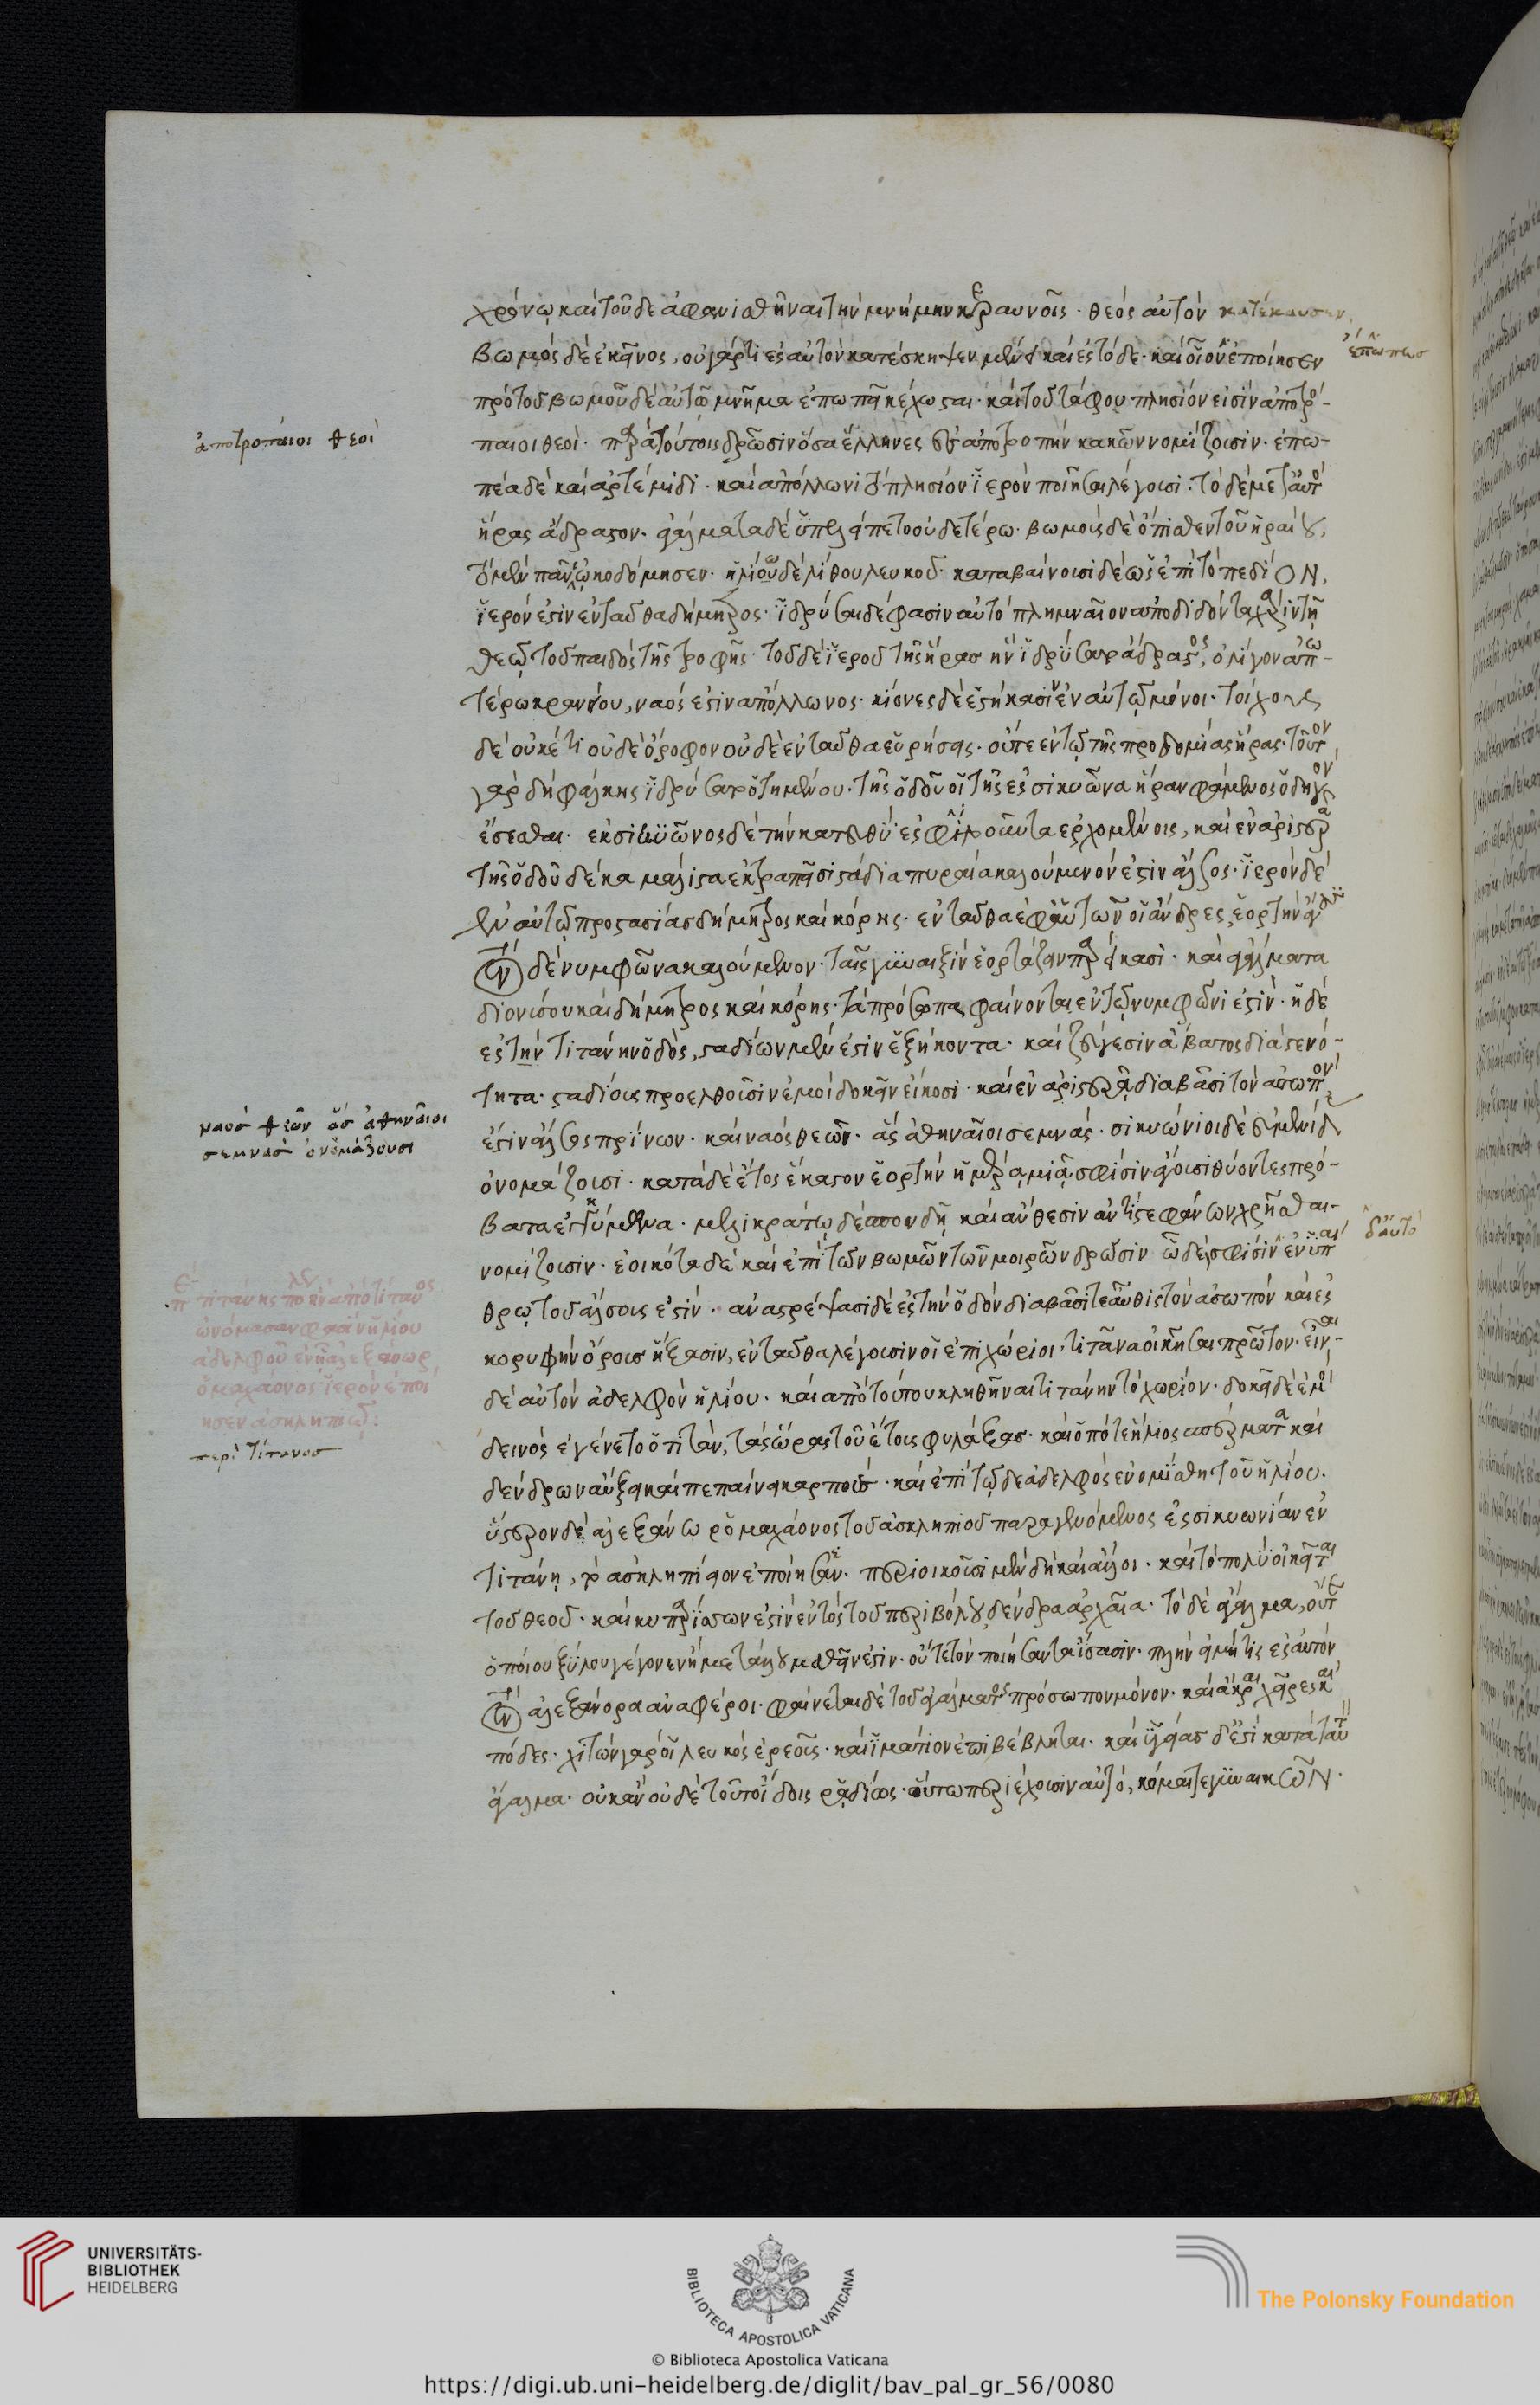 χρόνῳ καὶ τοῦδε ἀφανισθῆναι τὴν μνήμην κεραυνοῖς · θεὸς αὐτὸν κατέκαυσεν
βωμὸς δὲ ἐκεῖνος, οὐ γάρ τι ἐς αὐτὸν κατέσκηψεν μένει καὶ ἐς τόδε · καὶ οἷον ἐποίησεν
ἐπωπεὺς
πρὸ τοῦ βωμοῦ δὲ αὐτῶ μνῆμα ἐπωπεῖ κέχωσται · καὶ τοῦ τάφου πλησίον εἰσὶν ἀποτρό-
ἀποτρόπαιοι θεοὶ
παιοι θεοί · παρὰ τούτοις δρῶσιν ὅσα ἕλληνες ἐς ἀποτροπὴν κακῶν νομίζουσιν · ἐπω-
πέα δὲ καὶ ἀρτέμιδι · καὶ ἀπόλλωνι τὸ πλησίον ἱερὸν ποιῆσαι λέγουσι : τὸ δὲ μετ' αὐτὸ
ἥρας ἄδραστον · ἀγάλματα δὲ ὑπελείπετο οὐδετέρω · βωμοὺς δὲ ὄπισθεν τοῦ ἡραίου,
τὸν μὲν πανὶ ᾠκοδόμησεν · ἡλίου δὲ λίθου λευκοῦ · καταβαίνουσι δὲ ὡς ἐπὶ τὸ πεδίΟΝ,
ἱερόν ἐστιν ἐνταῦθα δήμητρος · ἱδρῦσαι δέ φασιν αὐτὸ πλημναῖον ἀποδιδόντα χάριν τῇ
θεῷ τοῦ παιδὸς τῆς τροφῆς · τοῦ δὲ ἱεροῦ τῆς ἥρας ἣν ἱδρύσατο ἄδραστος, ὀλίγον ἀπω-
τέρω κρανίου, ναός ἐστιν ἀπόλλωνος · κίονες δὲ ἑστήκασιν ἐν αὐτῷ μόνοι · τοίχους
δὲ οὐκέτι οὐδὲ ὄροφον οὐδὲ ἐνταῦθα εὑρήσεις · οὔτε ἐν τῷ τῆς προδομίας ἥρας · τοῦτον
γὰρ δὴ φάλκης ἱδρύσατο τημένου · τῆς ὁδοῦ οἱ τῆς ἐς σικυῶνα ἥραν φάμενος ὁδηγὸν
ἔσεσθαι · ἐκ σικυῶνος δὲ τὴν κατευθὺ ἐς φλιοῦντα ἐρχομένοις, καὶ ἐν ἀριστερᾷ
τῆς ὁδοῦ δέκα μάλιστα ἐκτραπεῖσι στάδια πυραία καλούμενόν ἐστιν ἄλσος · ἱερὸν δὲ
ἐν αὐτῷ προστασίας δήμητρος καὶ κόρης · ἐνταῦθα ἐφ' αὑτῶν οἱ ἄνδρες ἑορτὴν ἄγουσι
τὸν δὲ νυμφῶνα καλούμενον · ταῖς γυναιξὶν ἑορτάζειν παρείκασι · καὶ ἀγάλματα
διονύσου καὶ δήμητρος καὶ κόρης · τὰ πρόσωπα φαίνοντα ἐν τῷ νυμφῶνί ἐστίν · ἡ δὲ
ἐς τὴν τιτάνην ὁδὸς, σταδίων μέν ἐστιν ἑξήκοντα · καὶ ζεύγεσιν ἄβατος διὰ στενό-
τητα · σταδίους προελθοῦσιν ἐμοὶ δοκεῖν εἴκοσι · καὶ ἐν ἀριστερᾷ διαβᾶσι τὸν ἀσωπὸν
ναὸς θεῶν ἃς ἀθηναῖοι
σεμνὰς ὀνομάζουσι
ἐστὶν ἄλσος πρίνων · καὶ ναὸς θεῶν · ἃς ἀθηναῖοι σεμνάς · σικυώνιοι δὲ εὐμενίδας
ὀνομάζουσι · κατὰ δὲ ἔτος ἕκαστον ἑορτὴν ἡμέρᾳ μιᾷ σφίσιν ἄγουσι θύοντες πρό-
βατα ἐγκύμονα · μελικράτῳ δὲ σπονδῇ καὶ ἄνθεσιν ἀντὶ στεφάνων χρῆσθαι
νομίζουσιν · ἐοικότα δὲ καὶ ἐπὶ τῶν βωμῶν τῶν μοιρῶν δρῶσιν ὧδε σφίσιν ἐν ὑπαί
δ' αὐτὸ
θρῳ τοῦ ἄλσους ἐστίν · ἀναστρέψασι δὲ ἐς τὴν ὁδὸν διαβᾶσί τε αὖθις τὸν ἀσωπὸν καὶ ἐς
κορυφὴν ὄρους ἥξασιν, ἐνταῦθα λέγουσιν οἱ ἐπιχώριοι, τιτᾶνα οἰκῆσαι πρῶτον · εἶναι
δὲ αὐτὸν ἀδελφὸν ἡλίου · καὶ ἀπὸ τούτου κληθῆναι τιτάνην τὸ χωρίον · δοκεῖ δὲ ἐμοὶ
ὠνόμασαν φασὶν ἡλίου
ἀδελφοῦ ἐν ᾗ ἀλεξάνωρ
ὁ μαχάονος ἱερὸν ἐποί
ησεν ἀσκληπιῷ :
περὶ τίτανος
δεινὸς ἐγένετο ὁ τιτὰν, τὰς ὥρας τοῦ ἔτους φυλάξας · καὶ ὁπότε ἥλιος σπέρματα καὶ
δένδρων αὔξει καὶ πεπαίνει καρποὺς · καὶ ἐπὶ τῷδε ἀδελφὸς ἐνομίσθη τοῦ ἡλίου ·
ὕστερον δὲ ἀλεξάνωρ ὁ μαχάονος τοῦ ἀσκληπιοῦ παραγενόμενος ἐς σικυωνίαν ἐν
τιτάνῃ, τὸ ἀσκληπιεῖον ἐποίησεν · περιοικοῦσι μὲν δὴ καὶ ἄλλοι · καὶ τὸ πολὺ οἰκέται
τοῦ θεοῦ · καὶ κυπαρίσσων ἐστὶν ἐντὸς τοῦ περιβόλου δένδρα ἀρχαῖα · τὸ δὲ ἄγαλμα, οὔτε
ὁποίου ξύλου γέγονεν ἢ μετάλλου μαθεῖν ἔστιν · οὔτε τὸν ποιήσαντα ἴσασιν · πλὴν εἰ μή τις ἐς αὐτὸν
τὸν ἀλεξάνορα ἀναφέροι · φαίνεται δὲ τοῦ ἀγάλματος πρόσωπον μόνον · καὶ ἄκραι χεῖρες καὶ
πόδες · χιτὼν γάρ οἱ λευκὸς ἐρεοῦς · καὶ ἱμάτιον ἐπιβέβληται · καὶ ὑγείας δ' ἔστι κατὰ ταὐτὸ
ἄγαλμα · οὐκ ἂν οὐδὲ τοῦτο ἴδοις ῥᾳδίως · οὕτω περιέχουσιν αὐτὸ, κόμαι τε γυναικΩΝ ·
UNIVERSITÄTS-
BIBLIOTHEK
HEIDELBERG
BIBLIOTECA APOSTOLICA VATICANA
The Polonsky Foundation
© Biblioteca Apostolica Vaticana
https://digi.ub.uni-heidelberg.de/diglit/bav_pal_gr_56/0080